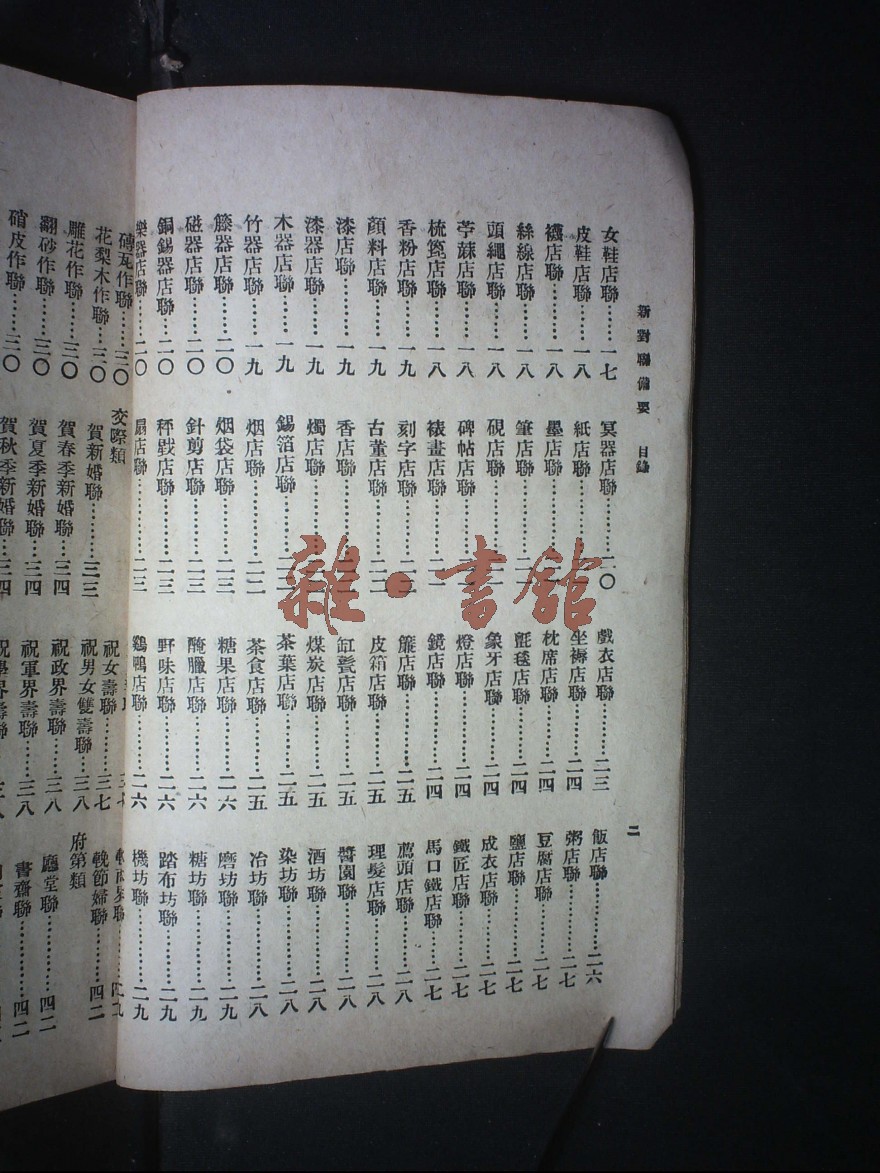 新對聯備要 目錄
二
女鞋店聯……一七
皮鞋店聯……一八
襪店聯……一八
絲線店聯……一八
頭繩店聯……一八
苧蔴店聯……一八
梳篦店聯……一八
香粉店聯……一九
顏料店聯……一九
漆店聯……一九
漆器店聯……一九
木器店聯……一九
竹器店聯……一九
籐器店聯……二〇
磁器店聯……二〇
銅錫器店聯……二〇
樂器店聯……二〇
冥器店聯……二〇
紙店聯……
墨店聯……
筆店聯……
硯店聯……
碑帖店聯……
裱畫店聯……
刻字店聯……
古董店聯……
香店聯……
燭店聯……
錫箔店聯……
烟店聯……二二
烟袋店聯……二三
針剪店聯……二三
秤戥店聯……二三
扇店聯……二三
戲衣店聯……二三
坐褥店聯……二四
枕席店聯……二四
氈毯店聯……二四
象牙店聯……二四
燈店聯……二四
鏡店聯……二四
簾店聯……二五
皮箱店聯……二五
缸甏店聯……二五
煤炭店聯……二五
茶葉店聯……二五
茶食店聯……二五
糖果店聯……二六
醃臘店聯……二六
野味店聯……二六
鷄鴨店聯……二六
飯店聯……二六
粥店聯……二七
豆腐店聯……二七
鹽店聯……二七
成衣店聯……二七
鐵匠店聯……二七
馬口鐵店聯……二七
薦頭店聯……二八
理髮店聯……二八
醬園聯……二八
酒坊聯……二八
染坊聯……二八
冶坊聯……二八
磨坊聯……二九
糖坊聯……二九
踏布坊聯……二九
機坊聯……二九
磚瓦作聯……三〇
花梨木作聯……三〇
雕花作聯……三〇
翻砂作聯……三〇
硝皮作聯……三〇
交際類
賀新婚聯……三三
賀春季新婚聯……三四
賀夏季新婚聯……三四
賀秋季新婚聯……三四
祝女壽聯……三七
祝男女雙壽聯……三八
祝政界壽聯……三八
祝軍界壽聯……三八
輓節婦聯……四二
府第類
廳堂聯……四二
書齋聯……四二
雜·書館